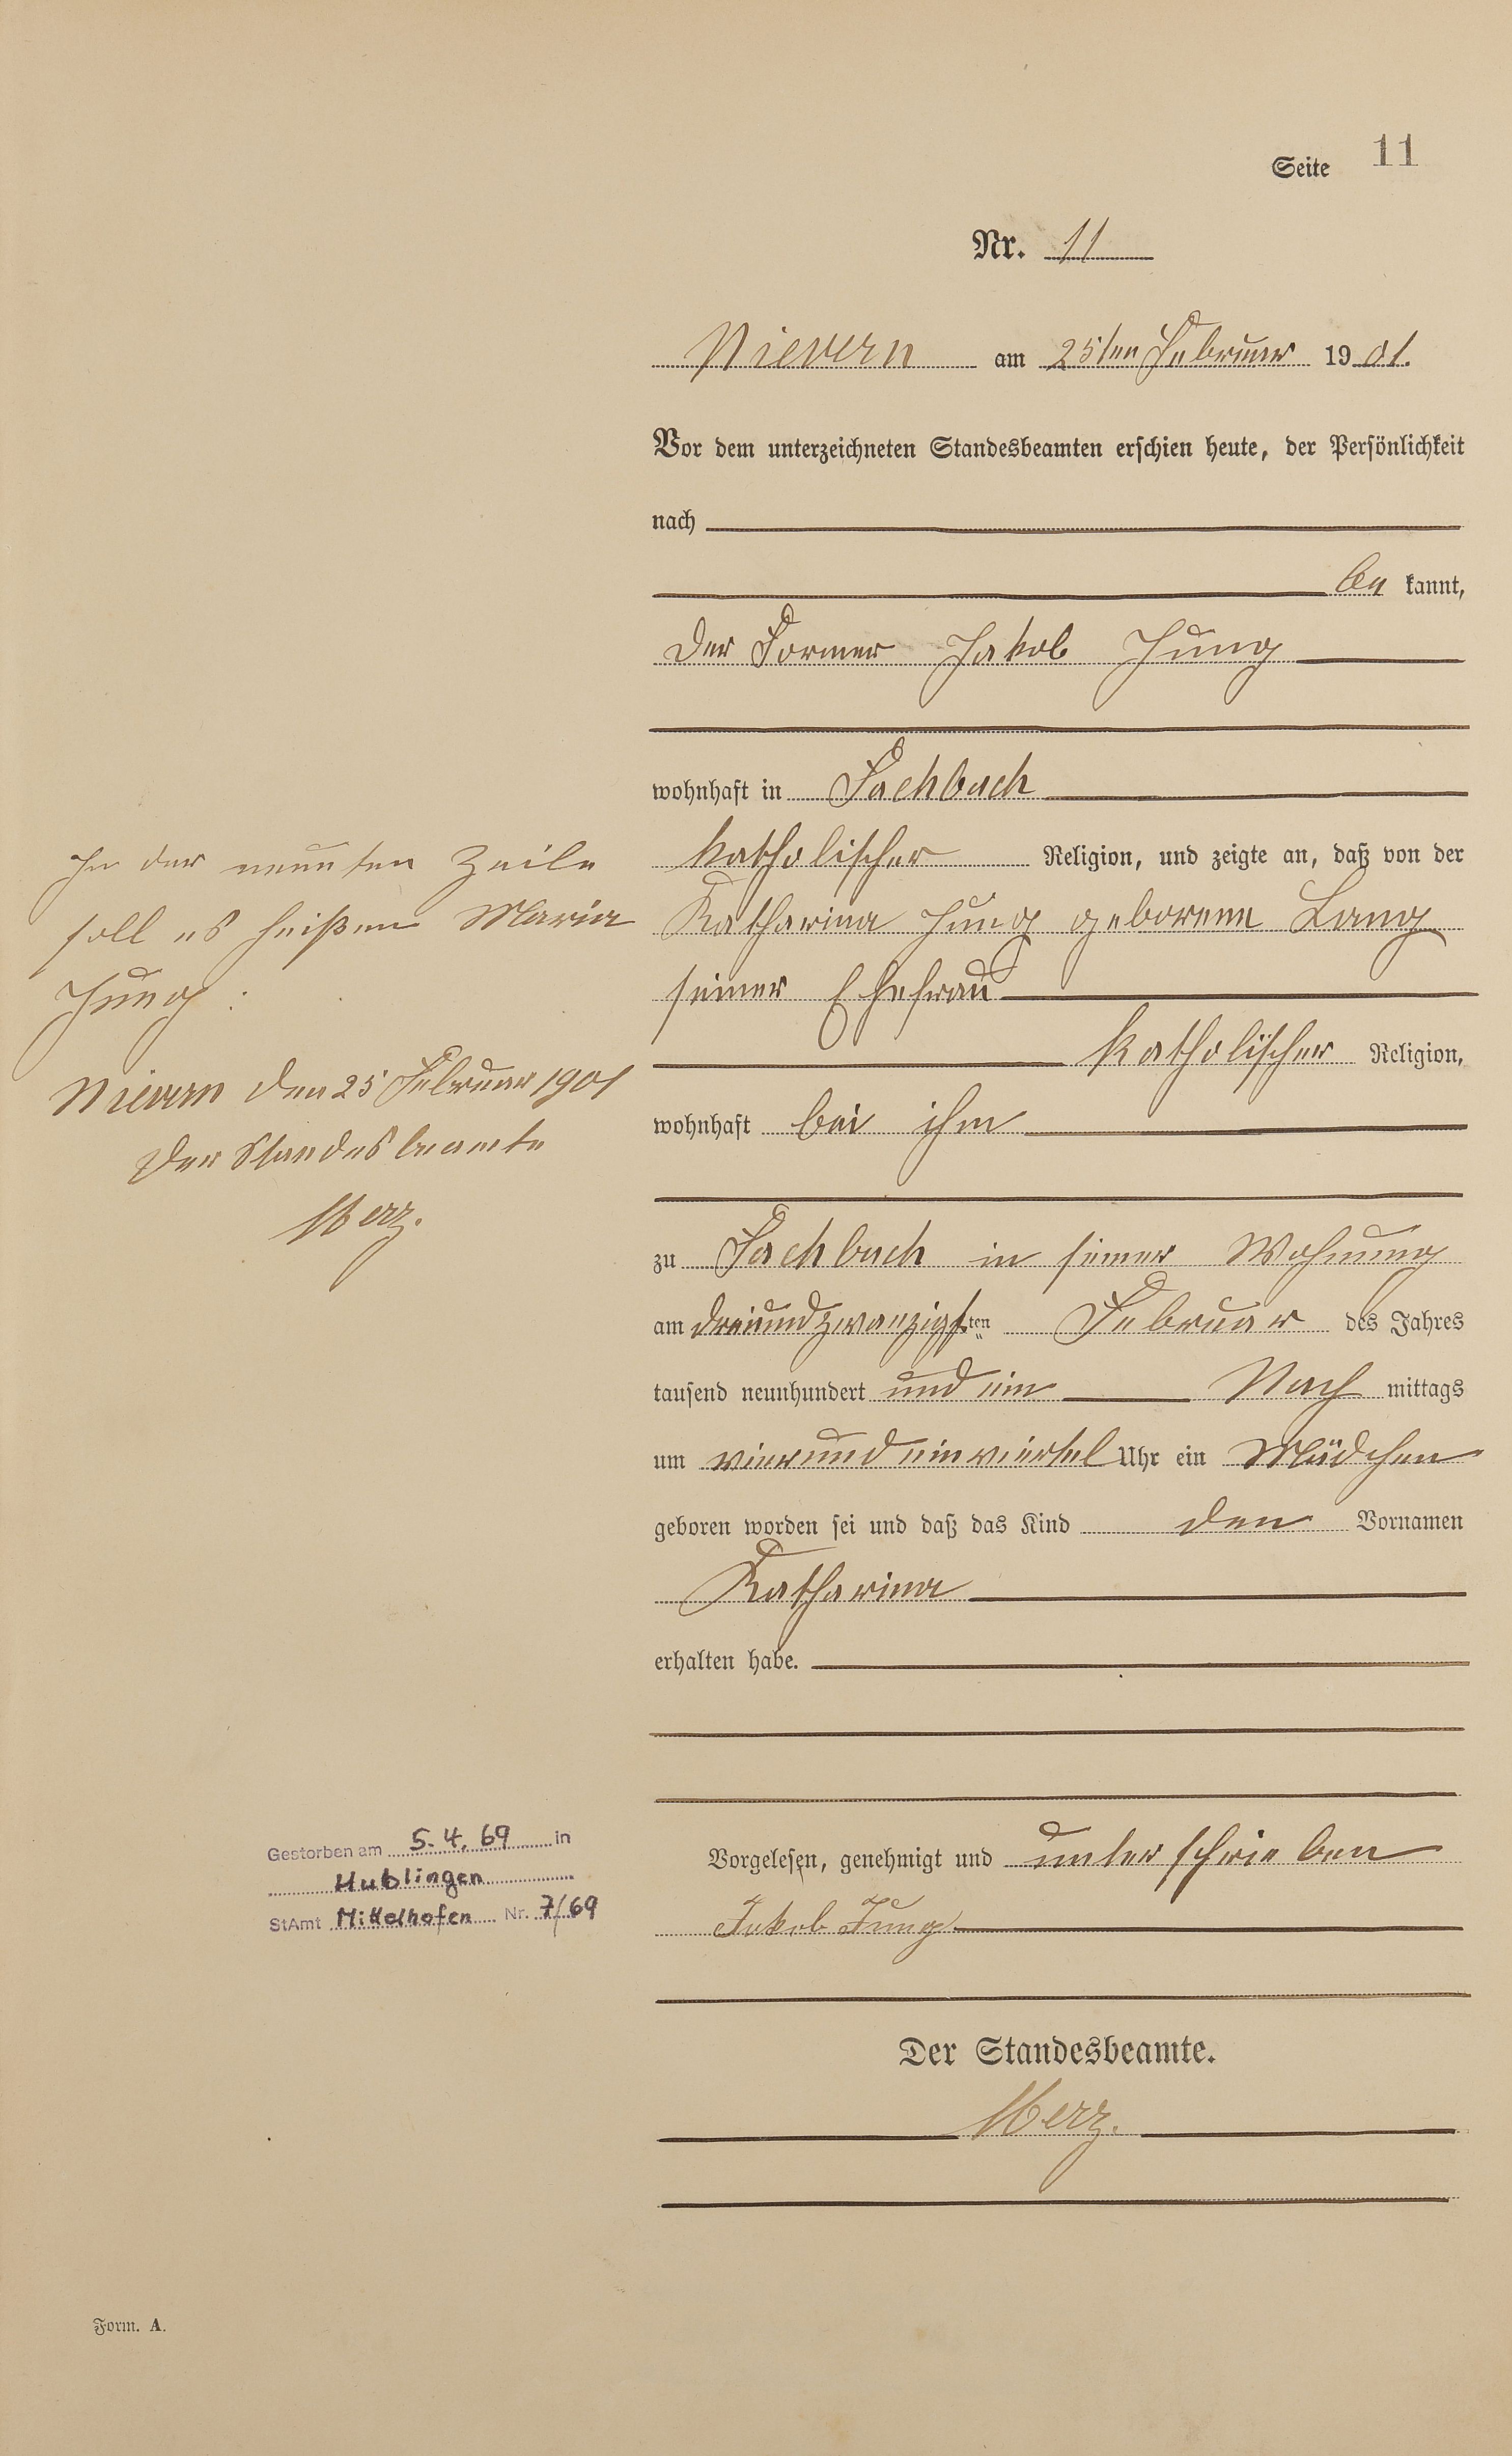 Seite 11
Nr. 11
Nievern am 25ten Februar 1901.
Vor dem unterzeichneten Standesbeamten erschien heute, der Persönlichkeit
nach
be kannt,
der Former Jakob Jung
wohnhaft in Fachbach
katholischer Religion, und zeigte an, daß von der
Katharina Jung geborene Lang
seiner Ehefrau
katholischer Religion,
wohnhaft bei ihm
zu Fachbach in seiner Wohnung
am dreiundzwanzigsten Februar des Jahres
tausend neunhundert und ein Nach mittags
um vierundeinviertel Uhr ein Mädchen
geboren worden sei und daß das Kind den Vornamen
Katharina
erhalten habe.
Vorgelesen, genehmigt und unterschrieben
Jakob Jung
Der Standesbeamte.
Merz.
In der neunten Zeile
soll es heißen Maria
Jung:
Nievern den 25 Februar 1901
Der Standesbeamte
Merz.
Gestorben am 5.4.69 in
Hublingen
StAmt Mittelhofen Nr. 7/69
Form. A.